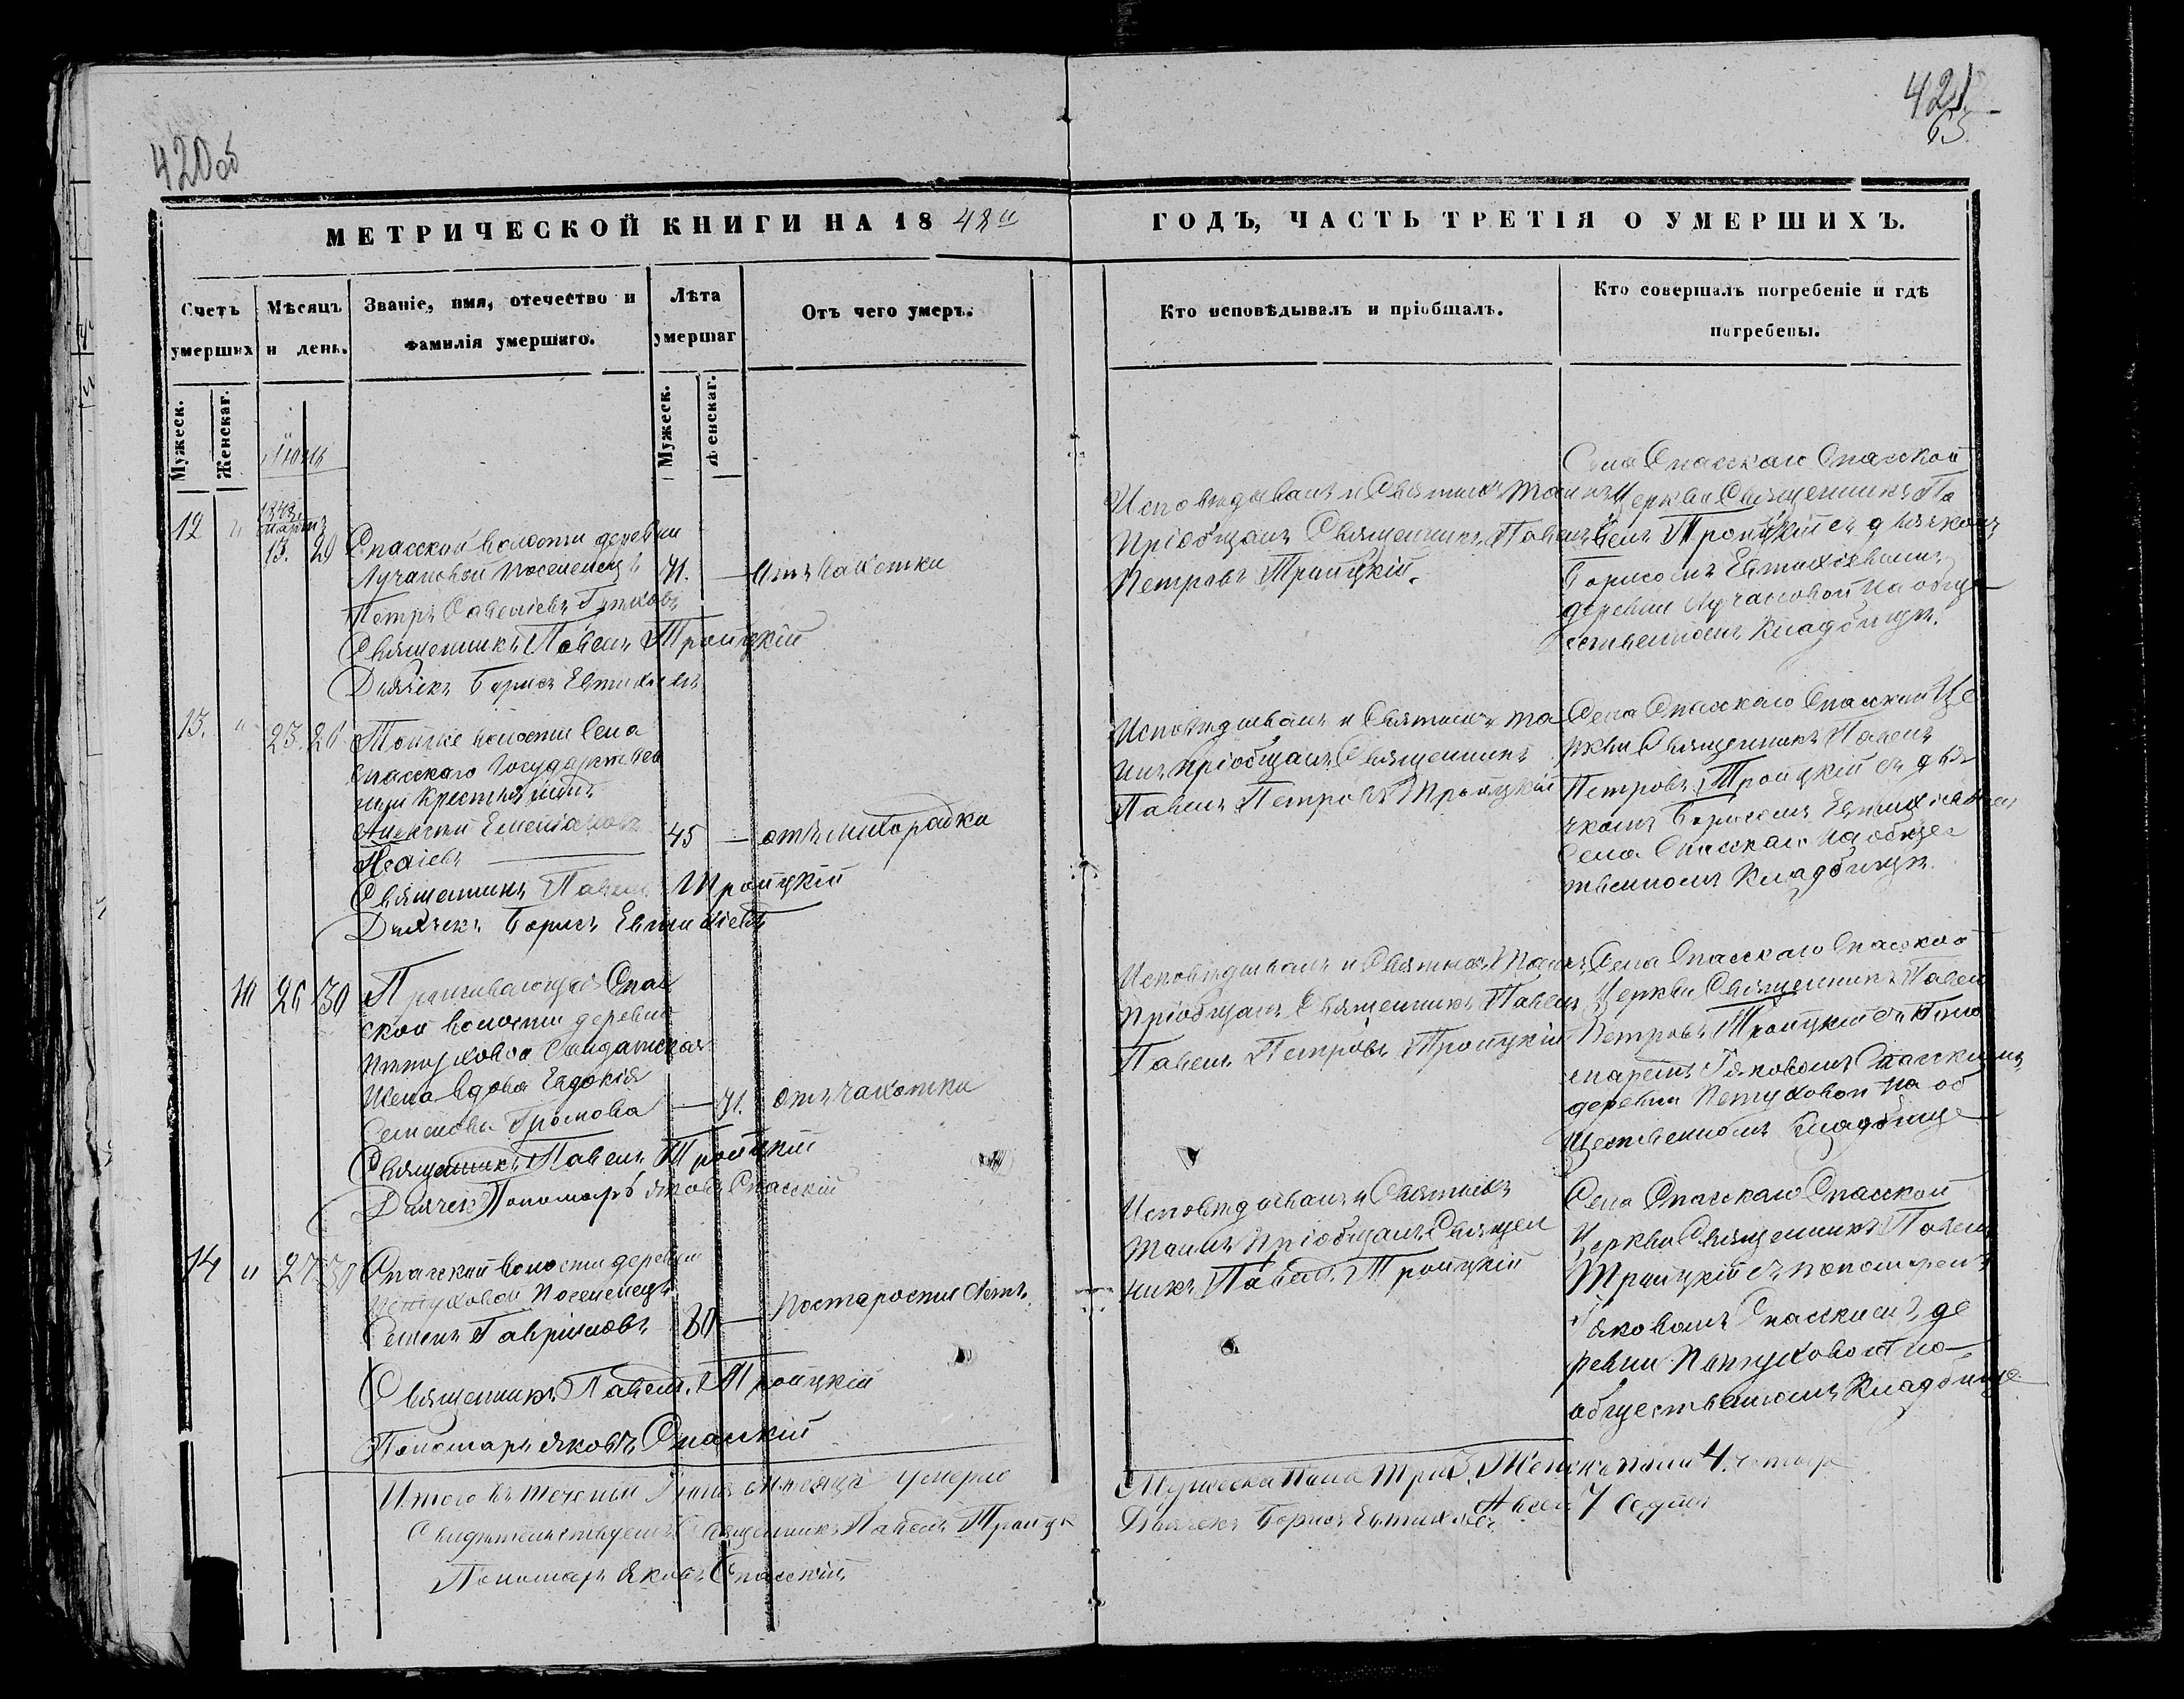 420 об
421
63
МЕТРИЧЕСКОЙ КНИГИ НА 1848й
ГОДЪ, ЧАСТЬ ТРЕТІЯ О УМЕРШИХЪ.
Счетъ умерших
Мѣсяцъ и день.
Званіе, имя, отечество и фамилія умершаго.
Лѣта умершаг
Отъ чего умеръ.
Кто исповѣдывалъ и пріобщалъ.
Кто совершалъ погребеніе и гдѣ погребены.
Мужеск.
Женскаг.
Мужеск.
Женскаг.
12 " 1848 20
Спасской волости деревни
Лучановой поселенецъ 41. — отъ чахотки
Петръ Савеліевъ
Священникъ Павелъ Троицкій
Дьячекъ Борисъ Евтихіевъ
Исповѣдывалъ и Святыхъ Таинъ
пріобщалъ Священникъ Павелъ
Петровъ Троицкій.
Села Спасскаго Спасской
Церкви Священникъ Па
велъ Троицкій съ дьячкомъ
Борисомъ Евтихіевымъ
деревни Лучановой на обще
ственномъ кладбищѣ.
13. " 23. 26
волости Села
Спасскаго Государствен
ный Крестьянинъ
Алексѣй Емельяновъ 45 — отъ лихорадки
Священникъ Павелъ Троицкій
Дьячекъ Борисъ Евтихіевъ
Исповѣдывалъ и Святыхъ та
инъ пріобщалъ Священникъ
Павелъ Петровъ Троицкій
Села Спасскаго Спасской Це
ркви Священникъ Павелъ
Петровъ Троицкій съ дья
чкомъ Борисомъ Евтихіевымъ
Села Спасскаго на общес
твенномъ кладбищѣ.
10 26 30
Проживающая Спас
ской волости деревни
Пѣтуховой Солдатская
Жена вдова Евдокія
Семенова Громова — 41. отъ чахотки
Священникъ Павелъ Троицкій
Дьячек Пономарь Яковъ Спасскій
Исповѣдывалъ и Святыхъ Таинъ
пріобщалъ Священникъ Павелъ
Павелъ Петровъ Троицкій
Села Спасскаго Спасской
Церкви Священникъ Павелъ
Петровъ Троицкій съ поно
маремъ Яковомъ Спасскимъ
деревни Петуховой на об
щественномъ кладбище
14 " 27 30
Спасской волости деревни
Петуховой поселенецъ
Семенъ Гавриловъ 80 — по старости лѣтъ
Священникъ Павелъ Троицкій
Пономарь Яковъ Спасскій
Исповѣдывалъ и Святыхъ
Таинъ пріобщалъ Священ
никъ Павелъ Троицкій
Села Спасскаго Спасской
Церкви Священникъ Павелъ
Троицкій съ пономаремъ
Яковомъ Спасскимъ де
ревни Пѣтуховой на
общественномъ кладбище
Итого въ теченіи мѣсяца умерло
Мужеска пола три 3. Женска пола 4. четыре
Священникъ Павелъ Троицк
Дьячекъ Борисъ Евтихіевъ А всего 7 седмь
Пономарь Яковъ Спасскій